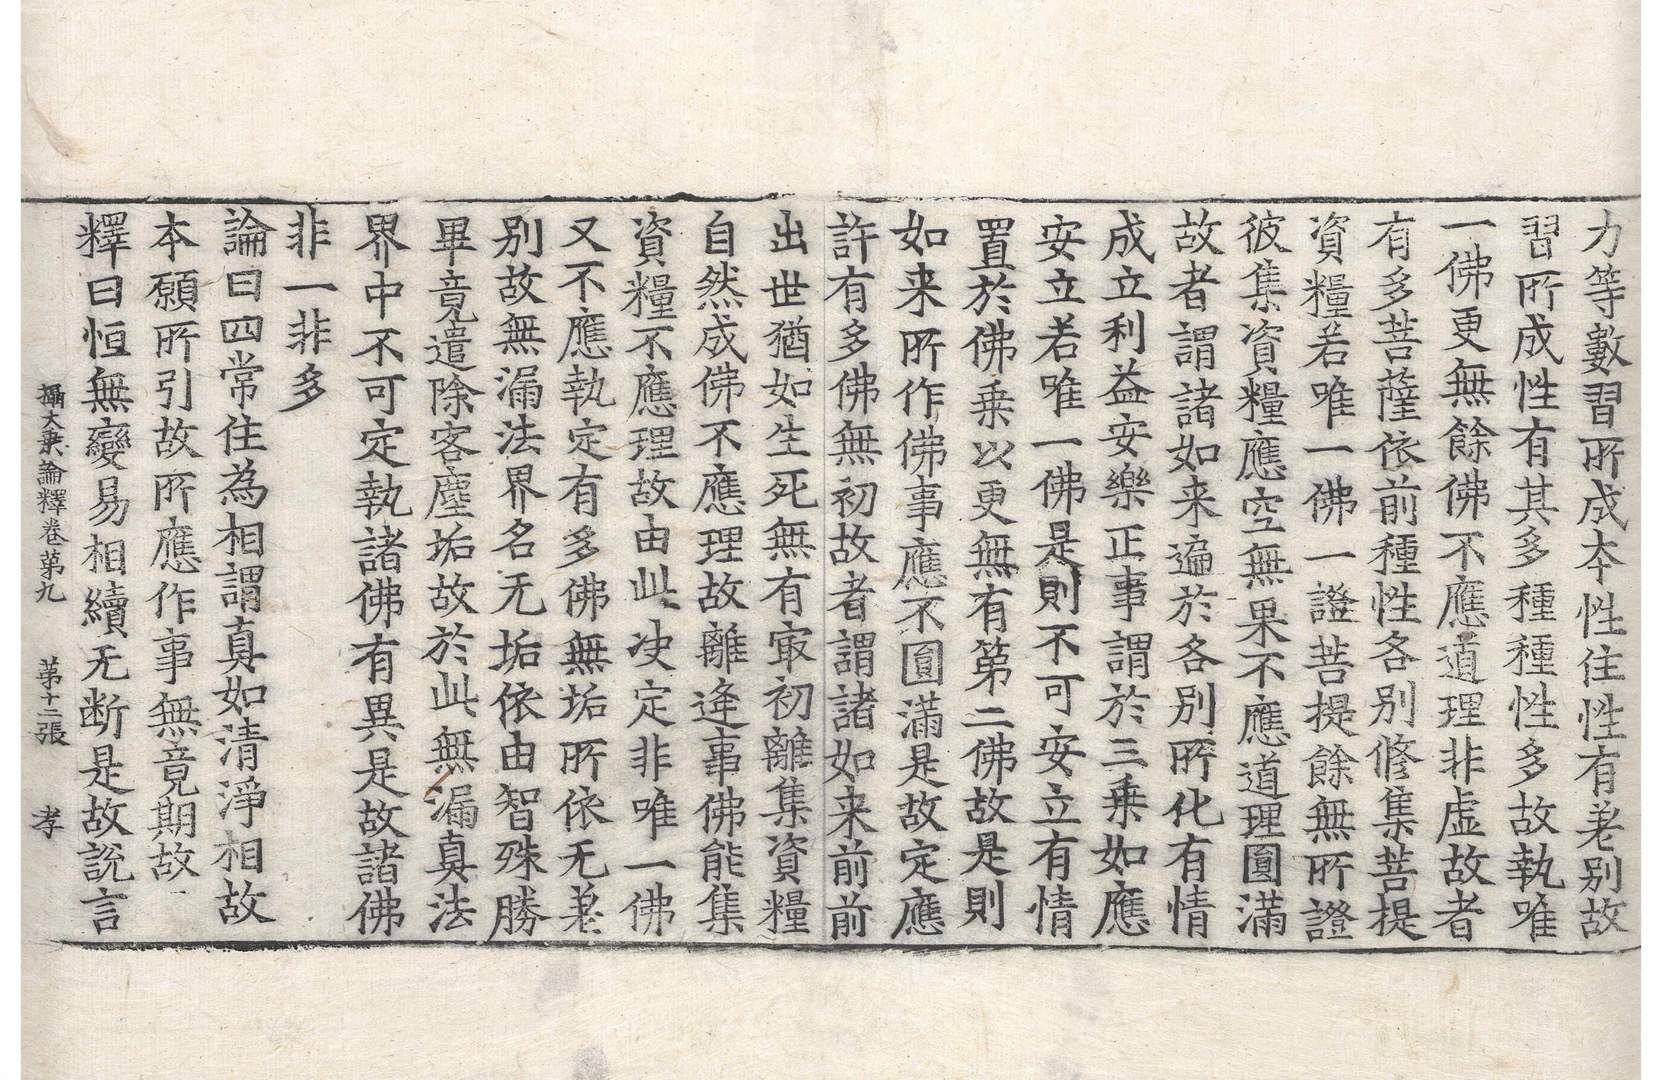 力等數習所成本性住性有差别故
習所成性有其多種種性多故執唯
一佛更無餘佛不應道理非虚故者
有多菩薩依前種性各别修集菩提
資糧若唯一佛一證菩提餘無所證
彼集資糧應空無果不應道理圓滿
故者謂諸如来遍於各别所化有情
成立利益安樂正事謂於三乗如應
安立若唯一佛是則不可安立有情
置於佛乗以更無有第二佛故是則
如来所作佛事應不圓滿是故定應
許有多佛無初故者謂諸如来前前
出世猶如生死無有㝡初離集資糧
自然成佛不應理故離逄事佛能集
資糧不應理故由此决定非唯一佛
又不應執定有多佛無垢所依无差
别故無漏法界名无垢依由智殊勝
畢竟遣除客塵垢故於此無漏真法
界中不可定執諸佛有異是故諸佛
非一非多
論曰四常住為相謂真如清淨相故
本願所引故所應作事無竟期故
釋曰恒無變易相續无断是故說言
攝大乗論釋卷第九　第十二張　孝